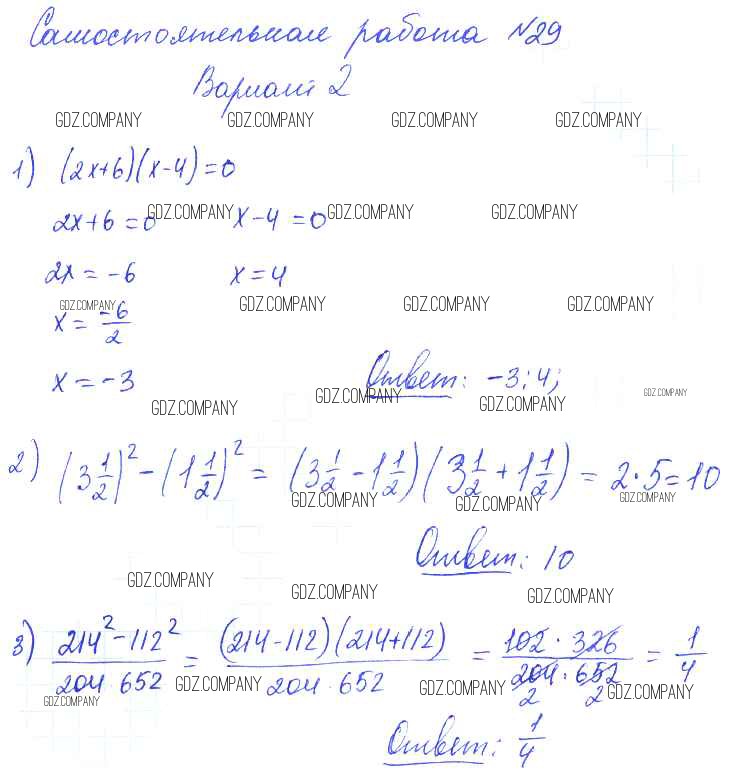 Самостоятельная работа №29
Вариант 2
GDZ.COMPANY GDZ.COMPANY GDZ.COMPANY GDZ.COMPANY
1) (2x+6)(x-4)=0
2x+6=0 x-4=0
GDZ.COMPANY GDZ.COMPANY GDZ.COMPANY
2x=-6 x=4
GDZ.COMPANY GDZ.COMPANY GDZ.COMPANY GDZ.COMPANY
x=-6/2
x=-3 Ответ: -3; 4;
GDZ.COMPANY GDZ.COMPANY GDZ.COMPANY GDZ.COMPANY
2) (3 1/2)² - (1 1/2)² = (3 1/2 - 1 1/2)(3 1/2 + 1 1/2) = 2·5=10
GDZ.COMPANY GDZ.COMPANY GDZ.COMPANY
Ответ: 10
GDZ.COMPANY GDZ.COMPANY GDZ.COMPANY
3) (214²-112²)/(204·652) = ((214-112)(214+112))/(204·652) = (102·326)/(204·652) = 1/4
2 2
GDZ.COMPANY GDZ.COMPANY GDZ.COMPANY GDZ.COMPANY
Ответ: 1/4